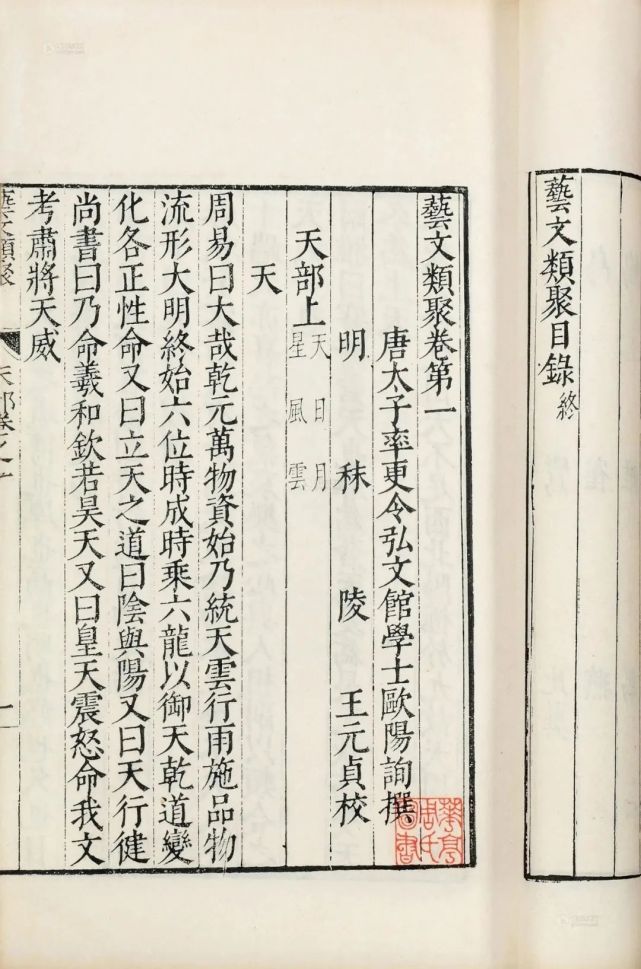 藝文類聚目錄終
藝文類聚卷第一
唐太子率更令弘文館學士歐陽詢撰
明 秣 陵 王元貞校
天部上 天 日 月 星 風 雲
天
周易曰大哉乾元萬物資始乃統天雲行雨施品物
流形大明終始六位時成時乘六龍以御天乾道變
化各正性命又曰立天之道曰陰與陽又曰天行健
尚書曰乃命羲和欽若昊天又曰皇天震怒命我文
考肅將天威
藝文類聚 天部卷之一 一